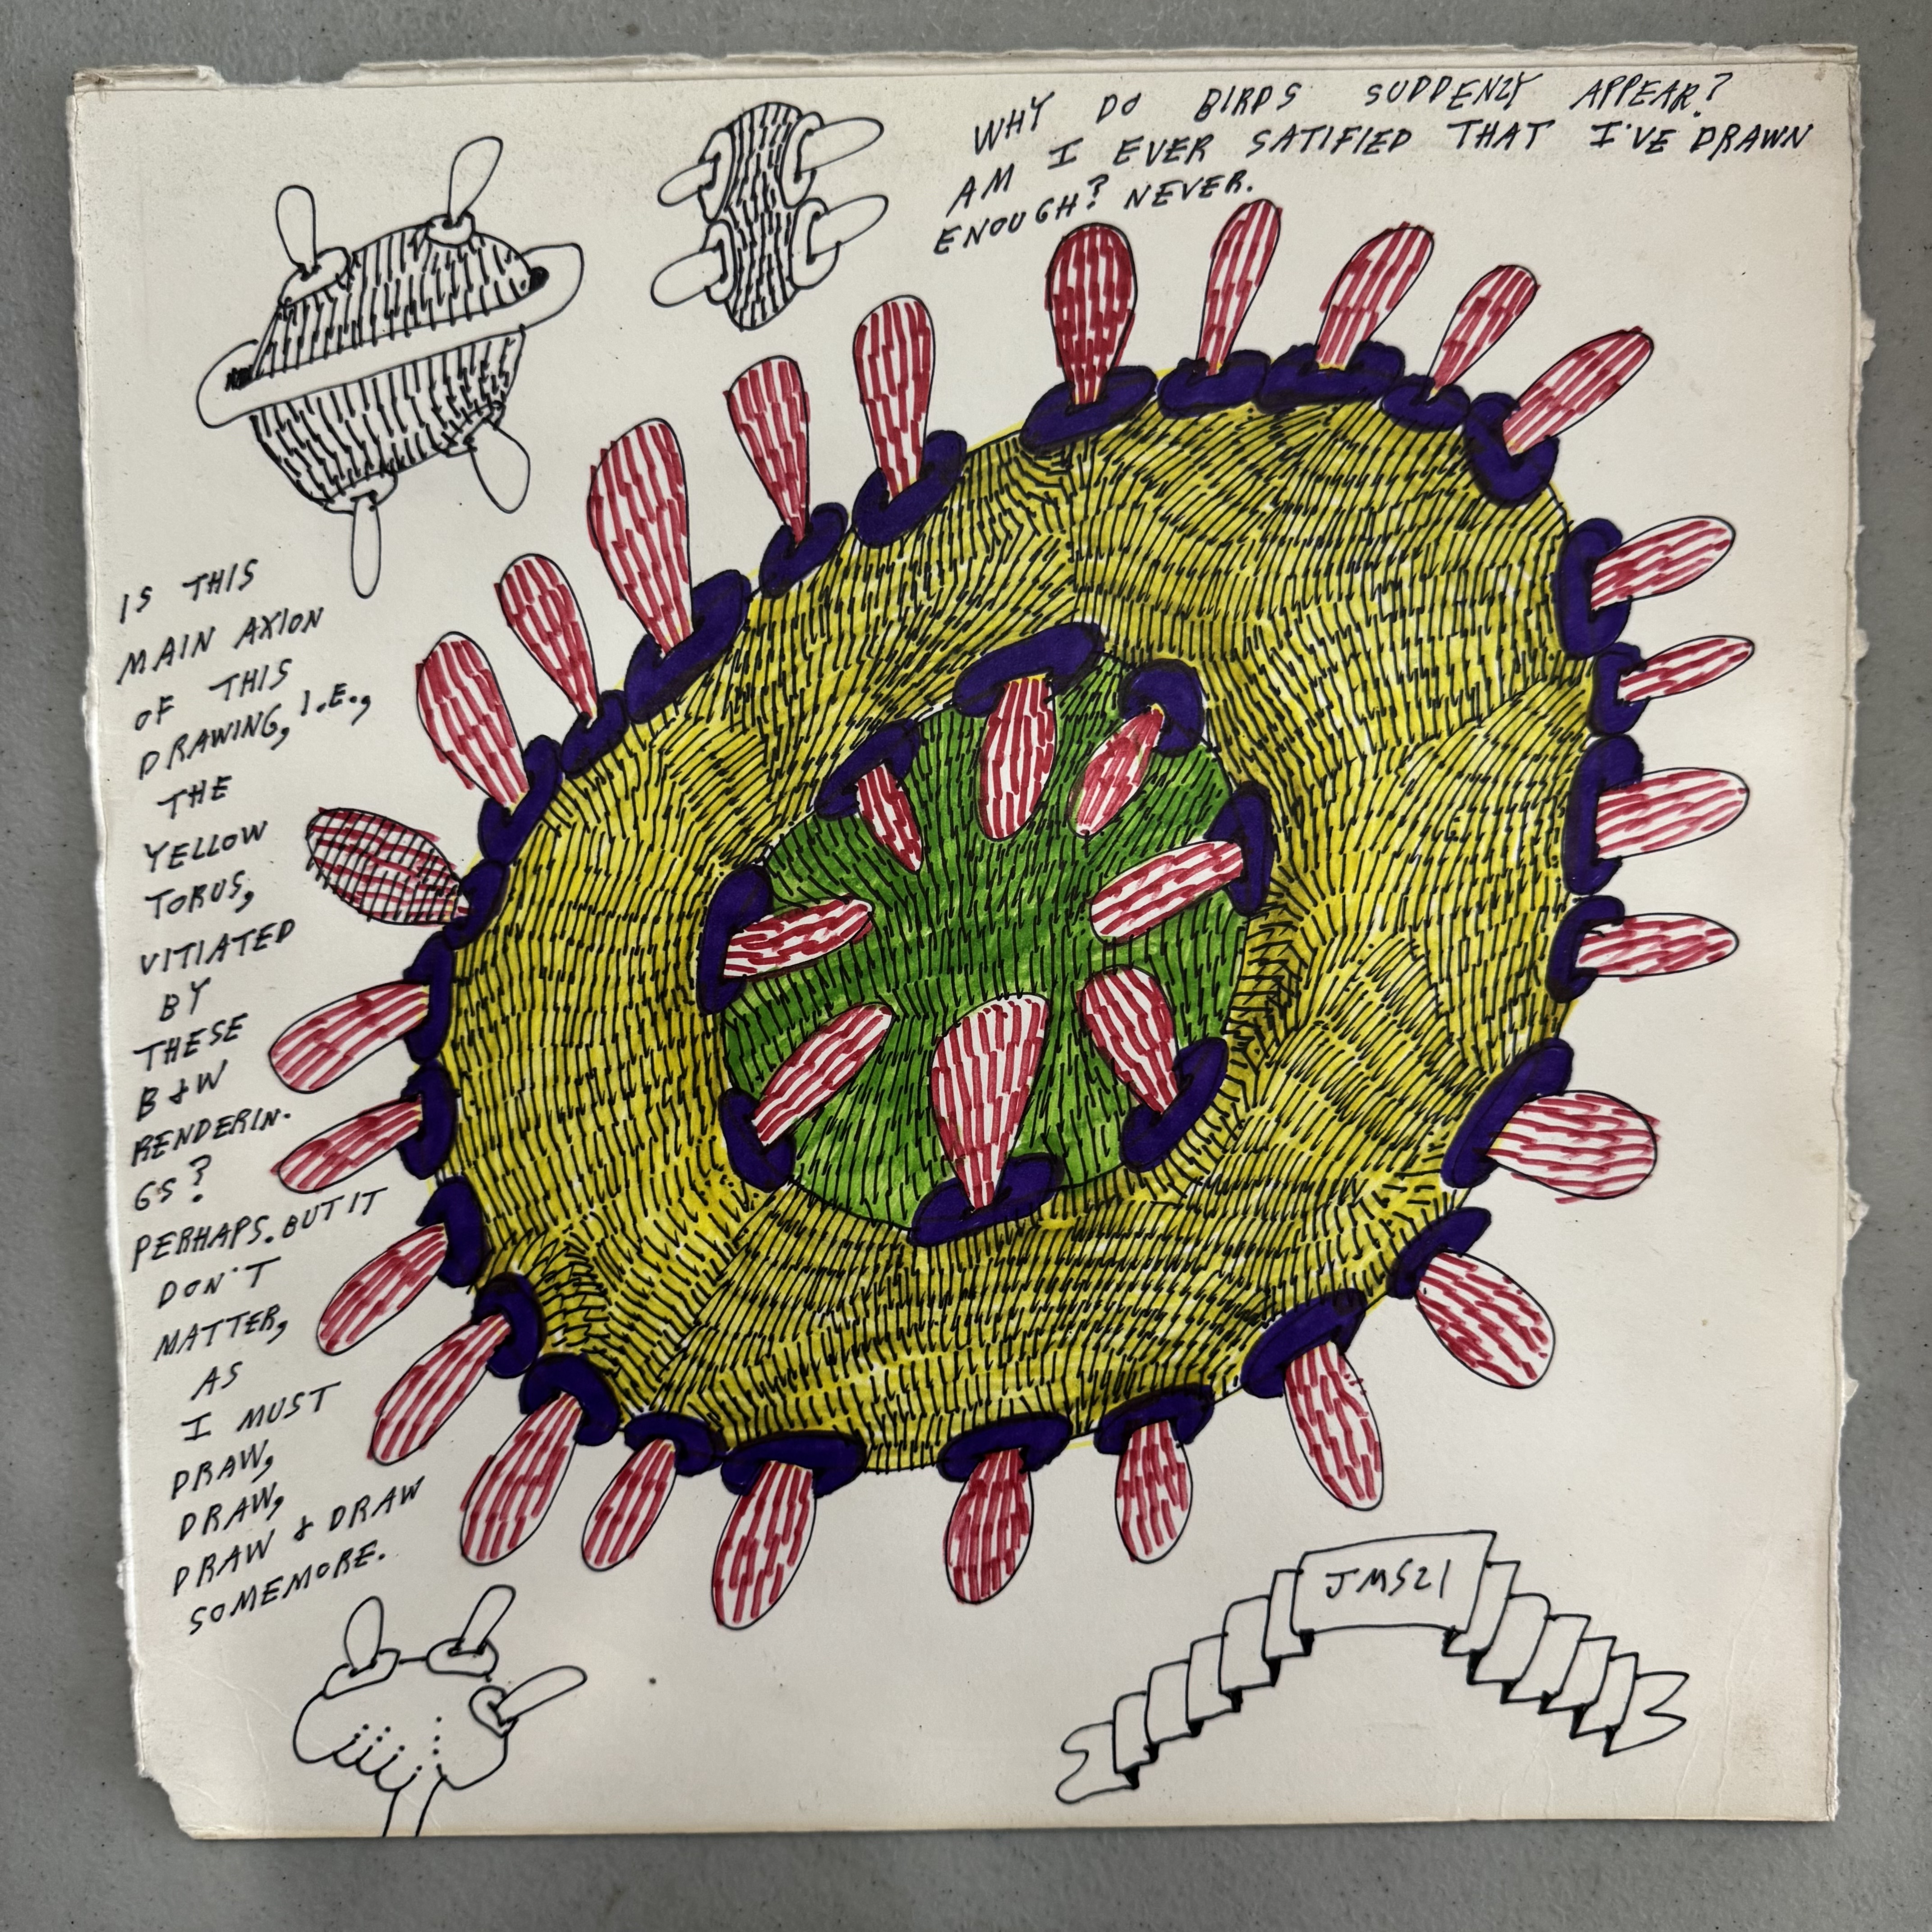 WHY DO BIRDS SUDDENLY APPEAR?
AM I EVER SATIFIED THAT I'VE DRAWN
ENOUGH? NEVER.
IS THIS
MAIN AXION
OF THIS
DRAWING, I.E.,
THE
YELLOW
TORUS,
VITIATED
BY
THESE
B & W
RENDERIN-
GS?
PERHAPS. BUT IT
DON'T
MATTER,
AS
I MUST
DRAW,
DRAW,
DRAW & DRAW
SOMEMORE.
JMS21